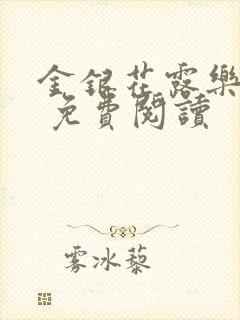 金银花露樂
免費閱讀
雾冰藜